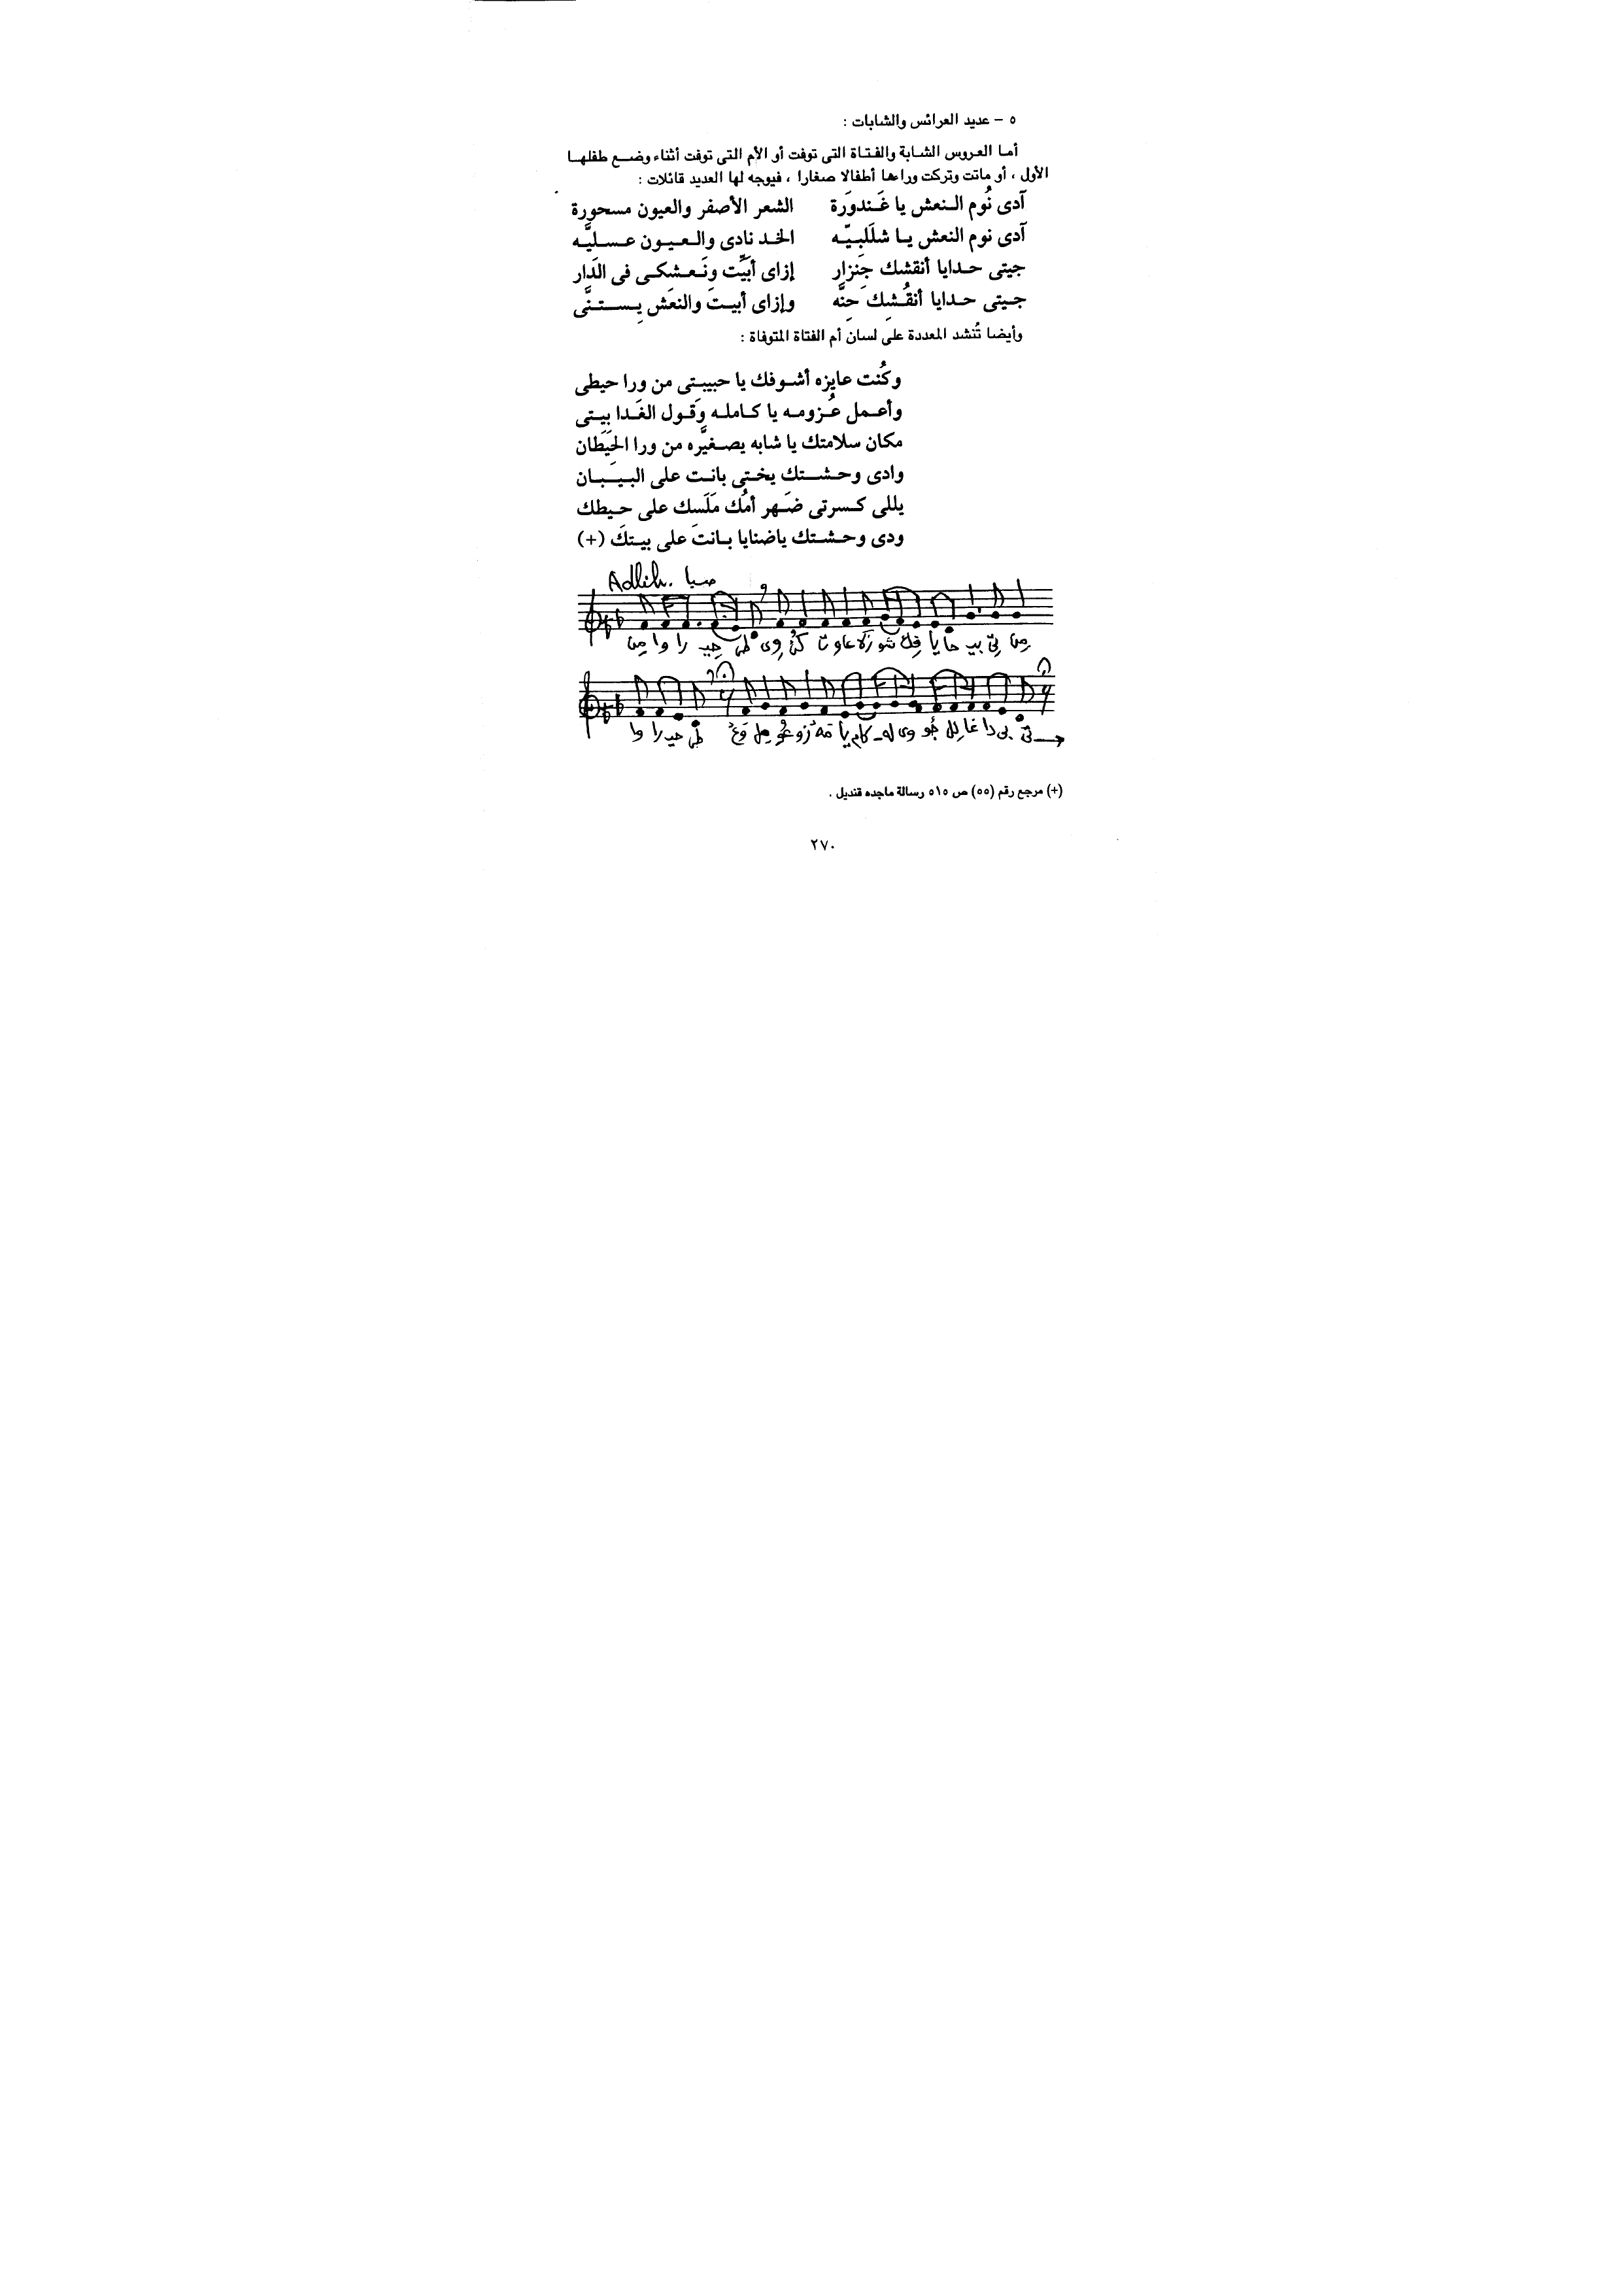 ٥ – عديد العرائس والشابات :
أما العروس الشابة والفتاة التى توفت أو الأم التى توفت أثناء وضع طفلها
الأول ، أو ماتت وتركت وراءها أطفالا صغارا ، فيوجه لها العديد قائلات :
آدى نُوم النعش يا غَندورَة الشعر الأصفر والعيون مسحورة
آدى نوم النعش يا شلَلبِيّه الخد نادى والعيون عسليَّه
جيتى حدايا أنقشك جِنزار إزاى أبَيِّت ونَعشكى فى الدَار
جيتى حدايا أنقُشِك حِنَّه وإزاى أبيت والنعَش يِستنَّى
وأيضا تُنشد المعددة على لسان أم الفتاة المتوفاة :
وكُنت عايزه أشوفك يا حبيبتى من ورا حيطى
وأعمل عُزومه يا كامله وَقول الغَدا بيتى
مكان سلامتك يا شابه يصغيَّره من ورا الحِيَطَان
وادى وحشتك يختى بانت على البيبان
يللى كسرتى ضَهر أمُك مَلَسك على حيطك
ودى وحشتك ياضنايا بانت على بيتك (+)
Adlib. صبا
مِن وا را حِيـ طى وِى كُنْ تْ عاو زَه شو فِك يا حا بيـ بتِى مِن
وا را حيـ طى وَعْ مِل عُو زو مَه يا كام ـله وى جُو لِل غا دا بى تى
(+) مرجع رقم (٥٥) ص ٥١٥ رسالة ماجده قنديل .
٢٧٠